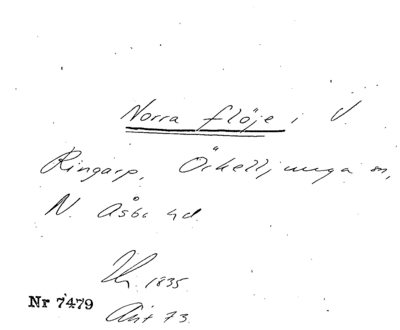 Norra flöje i V.
Ringarp, Örkelljunga sn,
N. Åsbo hd.
1835
Nr 7479
73.